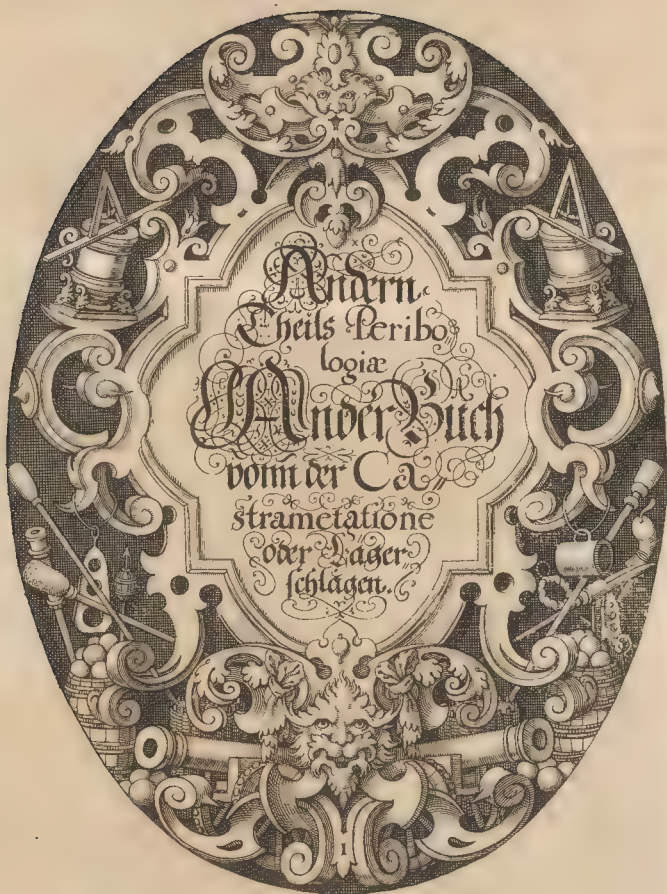 Andern
Theils Peribo⸗
logiæ
Ander Buch
vonn der Ca⸗
strametatione
oder Läger
schlagen.